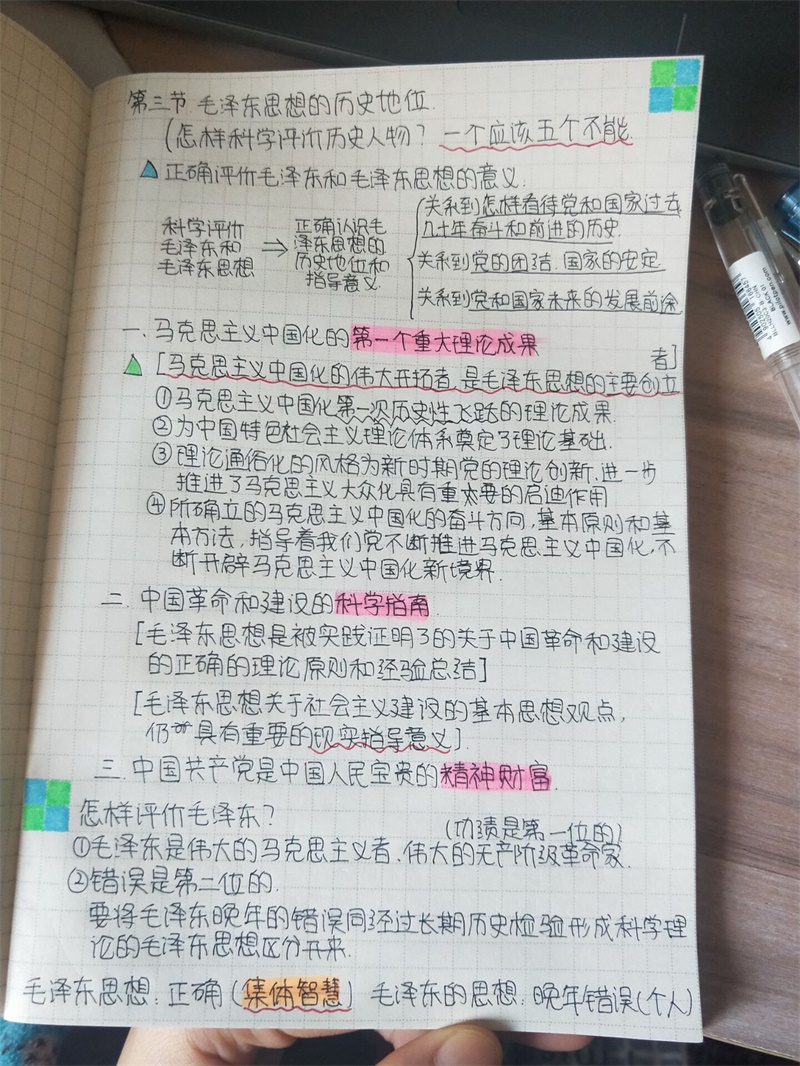 第三节 毛泽东思想的历史地位.
(怎样科学评价历史人物? 一个应该五个不能.
正确评价毛泽东和毛泽东思想的意义.
科学评价
毛泽东和
毛泽东思想
⇒
正确认识毛
泽东思想的
历史地位和
指导意义.
关系到怎样看待党和国家过去
几十年奋斗和前进的历史.
关系到党的团结.国家的安定.
关系到党和国家未来的发展前途
一.马克思主义中国化的第一个重大理论成果
[马克思主义中国化的伟大开拓者.是毛泽东思想的主要创立者]
①马克思主义中国化第一次历史性飞跃的理论成果.
②为中国特色社会主义理论体系奠定了理论基础.
③理论通俗化的风格为新时期党的理论创新.进一步
推进了马克思主义大众化具有重要的启迪作用
④所确立的马克思主义中国化的奋斗方向,基本原则和基
本方法,指导着我们党不断推进马克思主义中国化,不
断开辟马克思主义中国化新境界.
二.中国革命和建设的科学指南.
[毛泽东思想是被实践证明了的关于中国革命和建设
的正确的理论原则和经验总结]
[毛泽东思想关于社会主义建设的基本思想观点,
仍具有重要的现实指导意义].
三.中国共产党是中国人民宝贵的精神财富.
怎样评价毛泽东?
(功绩是第一位的)
①毛泽东是伟大的马克思主义者.伟大的无产阶级革命家.
②错误是第二位的.
要将毛泽东晚年的错误同经过长期历史检验形成科学理
论的毛泽东思想区分开来.
毛泽东思想:正确(集体智慧) 毛泽东的思想:晚年错误(个人)